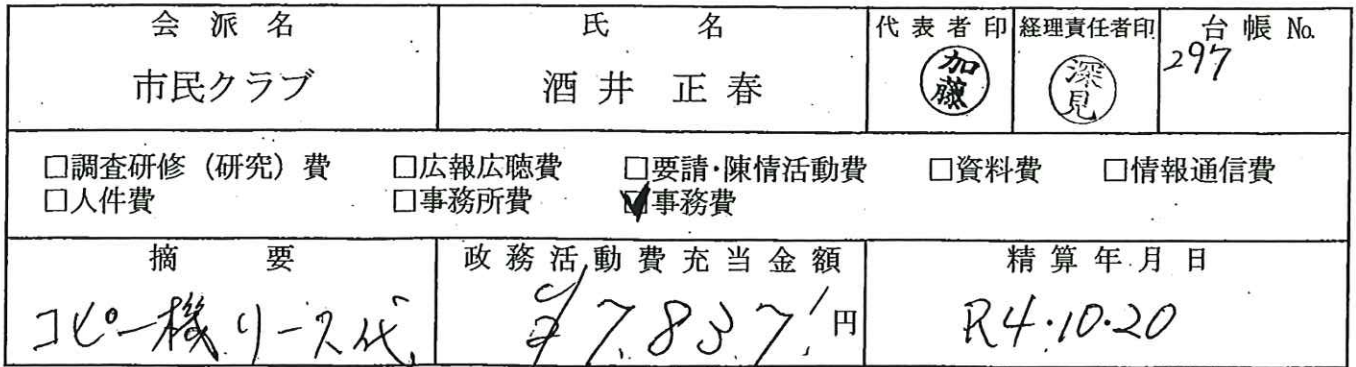 会派名 氏名 代表者印 経理責任者印 台帳No.
市民クラブ 酒井正春 加藤 深見 297
□調査研修(研究)費 □広報広聴費 □要請・陳情活動費 □資料費 □情報通信費
□人件費 □事務所費 ☑事務費
摘要 政務活動費充当金額 精算年月日
コピー機リース代 ¥7,837円 R4・10・20